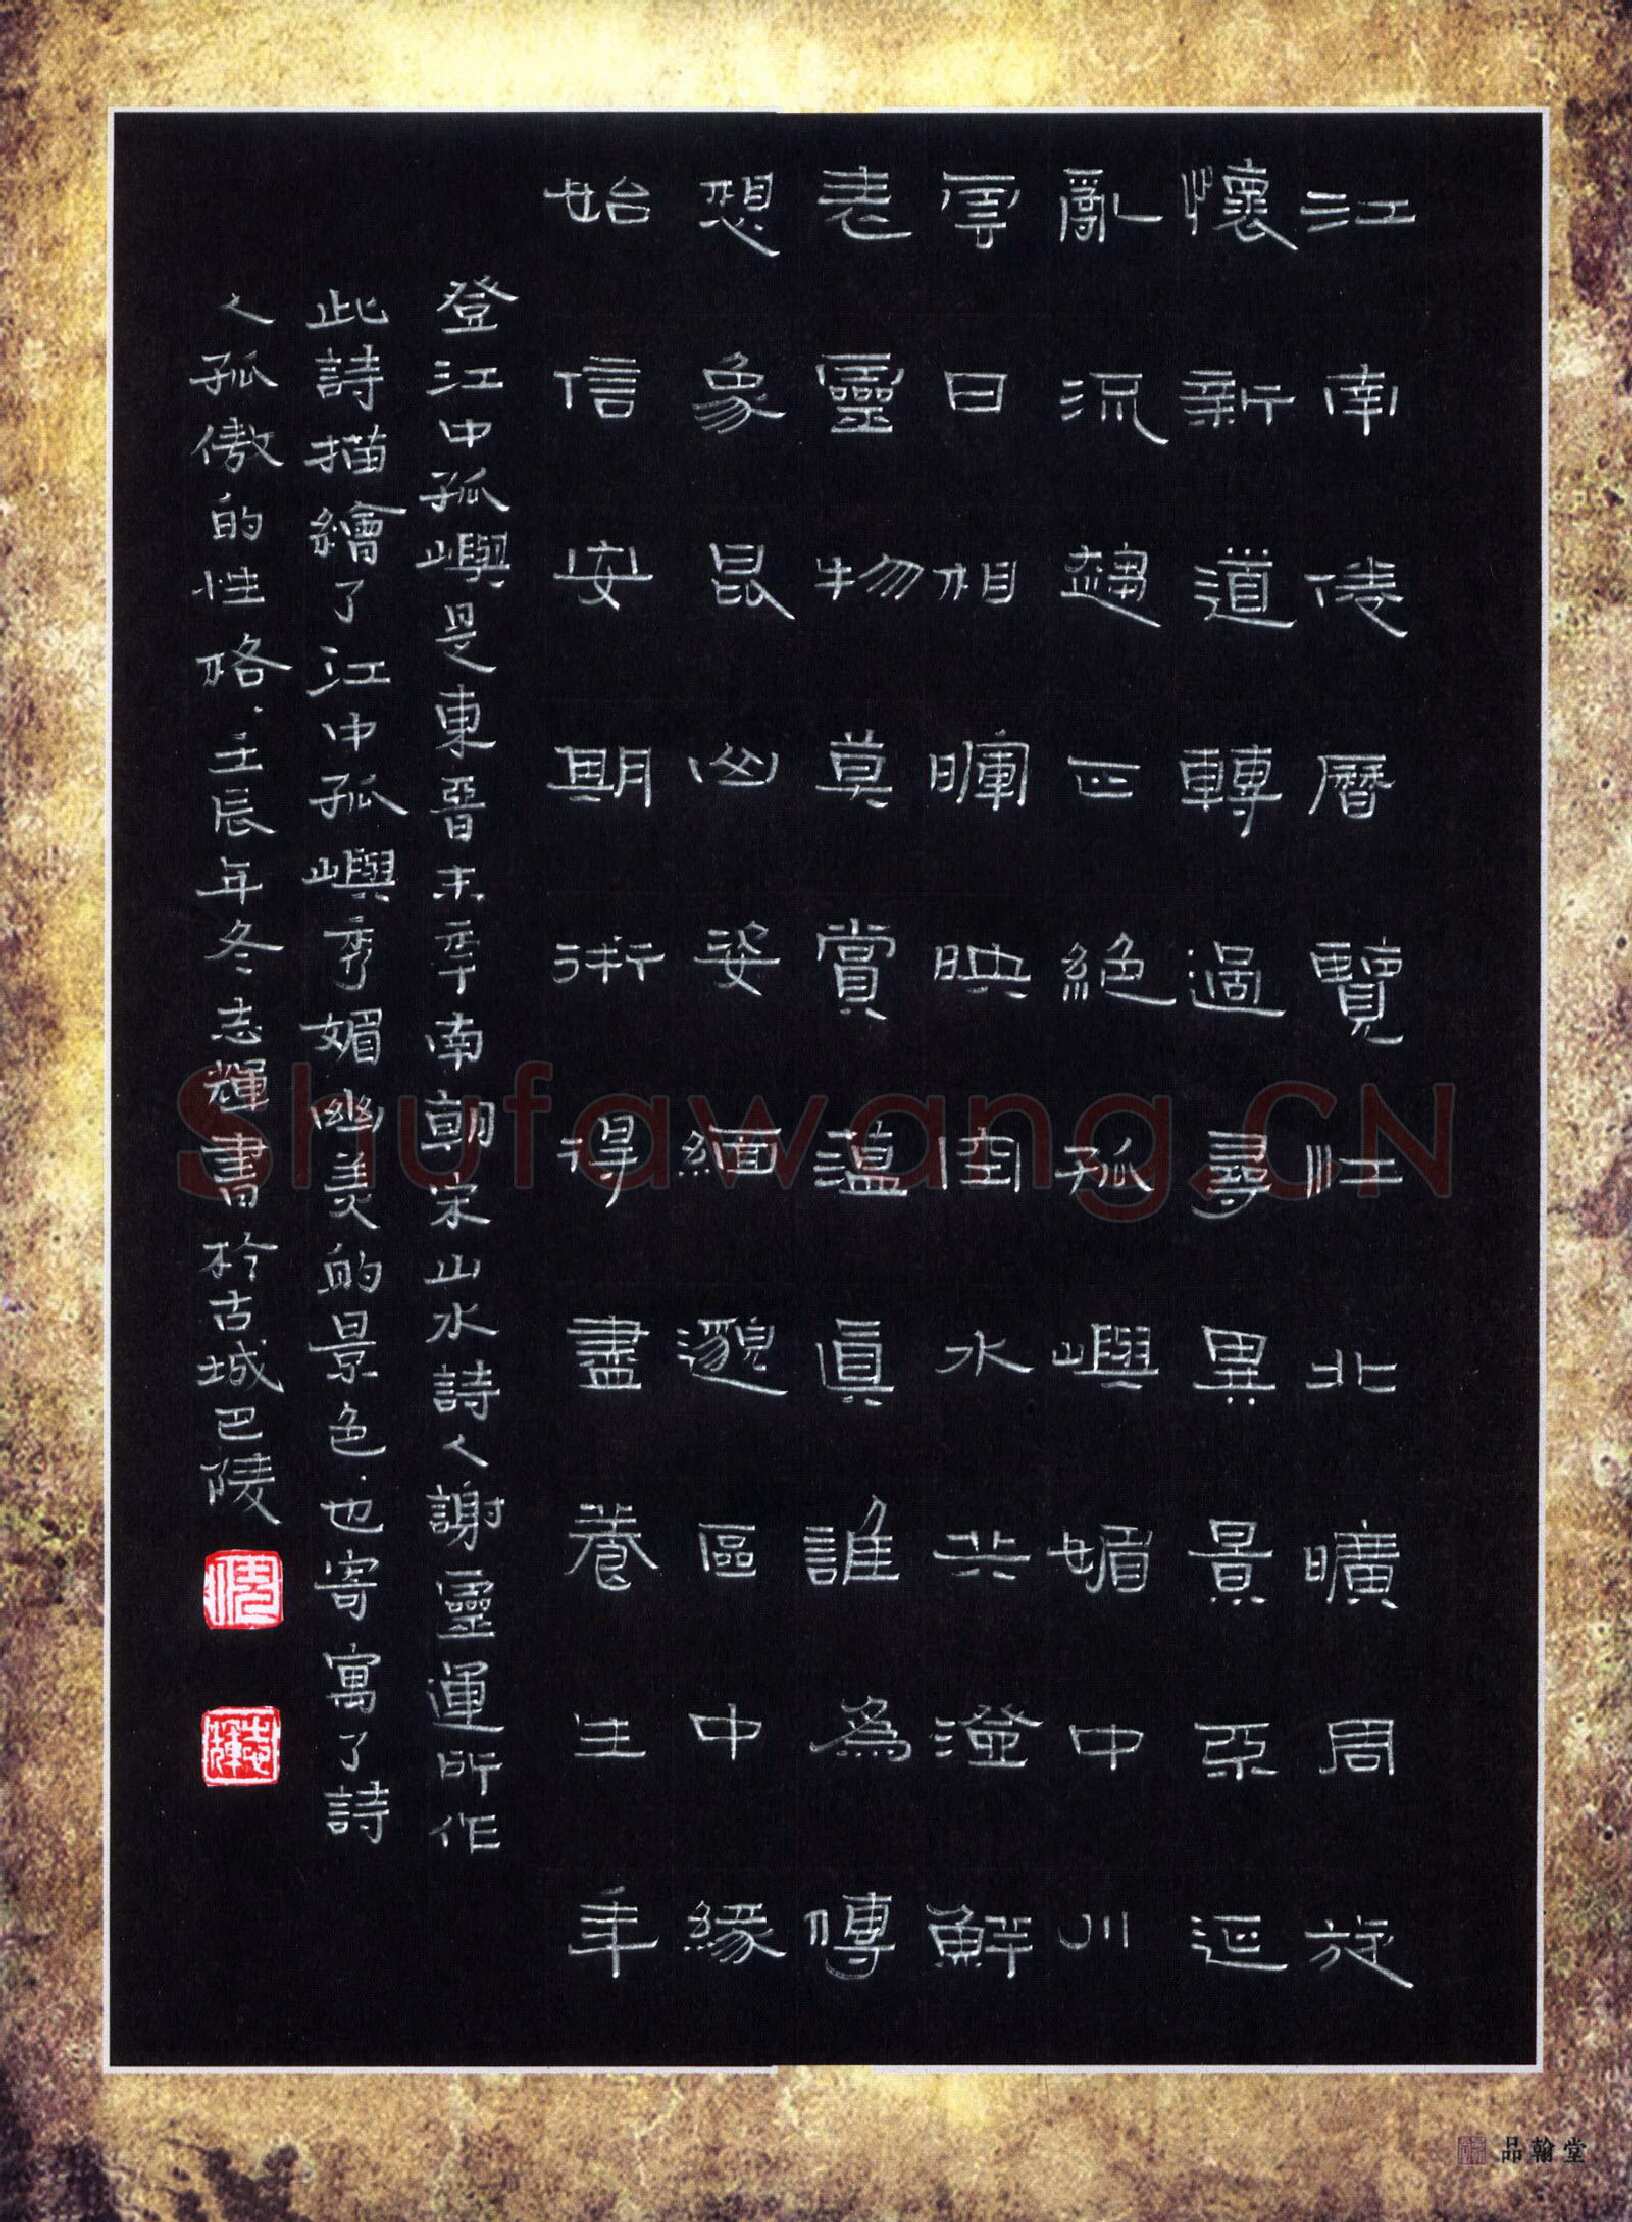 江南倦曆覽江北曠周旋
懷新道轉迥尋異景不延
亂流趨正絕孤嶼媚中川
雲日相暉映空水共澄鮮
表靈物莫賞蘊眞誰為傳
想象昆山姿緬邈區中緣
始信安期術得盡養生年
登江中孤嶼是東晉末年南朝宋山水詩人謝靈運所作
此詩描繪了江中孤嶼秀媚幽美的景色.也寄寓了詩
人孤傲的性格.壬辰年冬志輝書於古城巴陵
志輝
Shufawang.CN
品翰堂